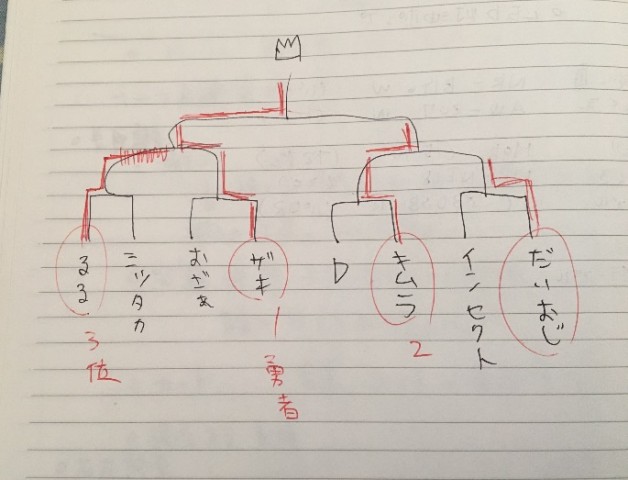 るる
ニッタカ
おざぁ
ザキ
D
キムラ
インセクト
だいおじ
3位
1
勇者
2